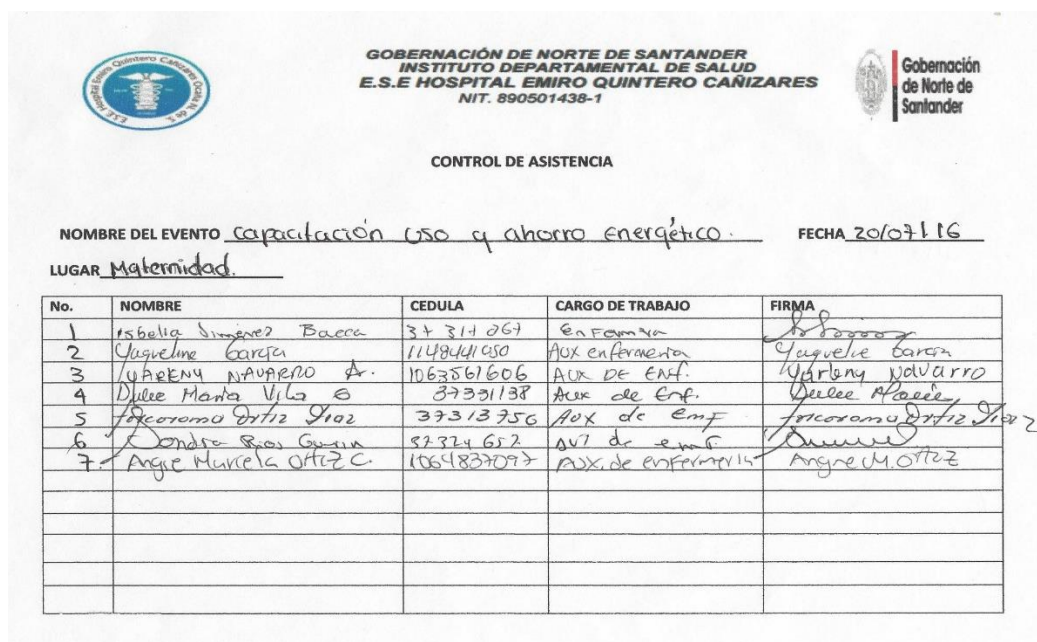 GOBERNACIÓN DE NORTE DE SANTANDER
INSTITUTO DEPARTAMENTAL DE SALUD
E.S.E HOSPITAL EMIRO QUINTERO CAÑIZARES
NIT. 890501438-1
Gobernación
de Norte de
Santander
CONTROL DE ASISTENCIA
NOMBRE DEL EVENTO Capacitación uso y ahorro energético. FECHA 20/07/16
LUGAR Maternidad.
No. NOMBRE CEDULA CARGO DE TRABAJO FIRMA
1 Isbelia Jimenez Bacca 37 317 067
2 Yaqueline Garcia Aux enfermeria Yaqueline Garcia
3 YARLENY NAVARRO A. 1063561606 AUX DE ENF. Yarleny Navarro
4 Dulce Maria Vila 37331138 Aux de Enf. Dulce Maria
5 Torcoroma Ortiz Diaz 37313756 Aux de emf Torcoroma Ortiz Diaz
6 Sondra Rios 37324652 de
7. Angie Marcela Ortiz C. 1064837097 Aux. de enfermeria Angie M. Ortiz